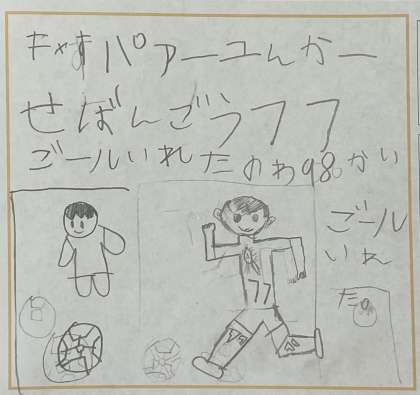 キャすパァーユんカー
せばんごう77
ごールいれたのわ98かい
ごール
いれ
たの
77